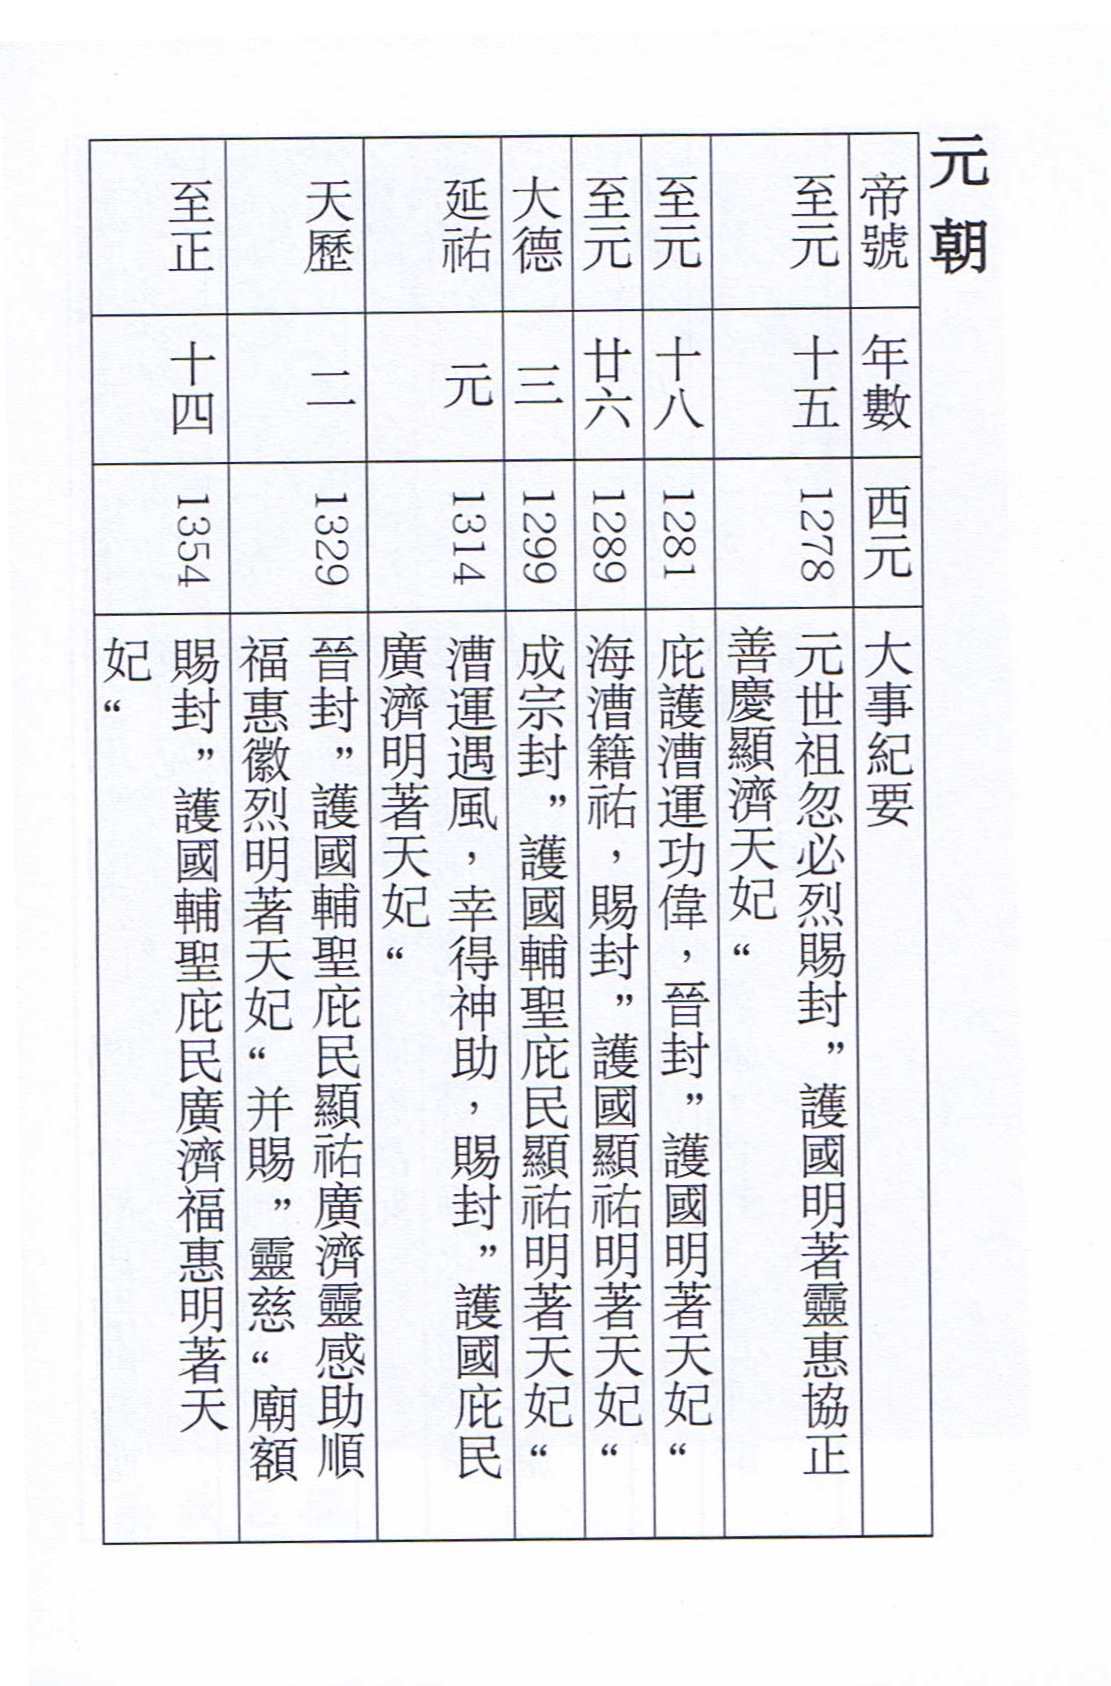 元朝
帝號 年數 西元 大事紀要
至元 十五 1278 元世祖忽必烈賜封”護國明著靈惠協正
善慶顯濟天妃“
至元 十八 1281 庇護漕運功偉，晉封”護國明著天妃“
至元 廿六 1289 海漕籍祐，賜封”護國顯祐明著天妃“
大德 三 1299 成宗封”護國輔聖庇民顯祐明著天妃“
延祐 元 1314 漕運遇風，幸得神助，賜封”護國庇民
廣濟明著天妃“
天歷 二 1329 晉封”護國輔聖庇民顯祐廣濟靈感助順
福惠徽烈明著天妃“并賜”靈慈“廟額
至正 十四 1354 賜封”護國輔聖庇民廣濟福惠明著天
妃“